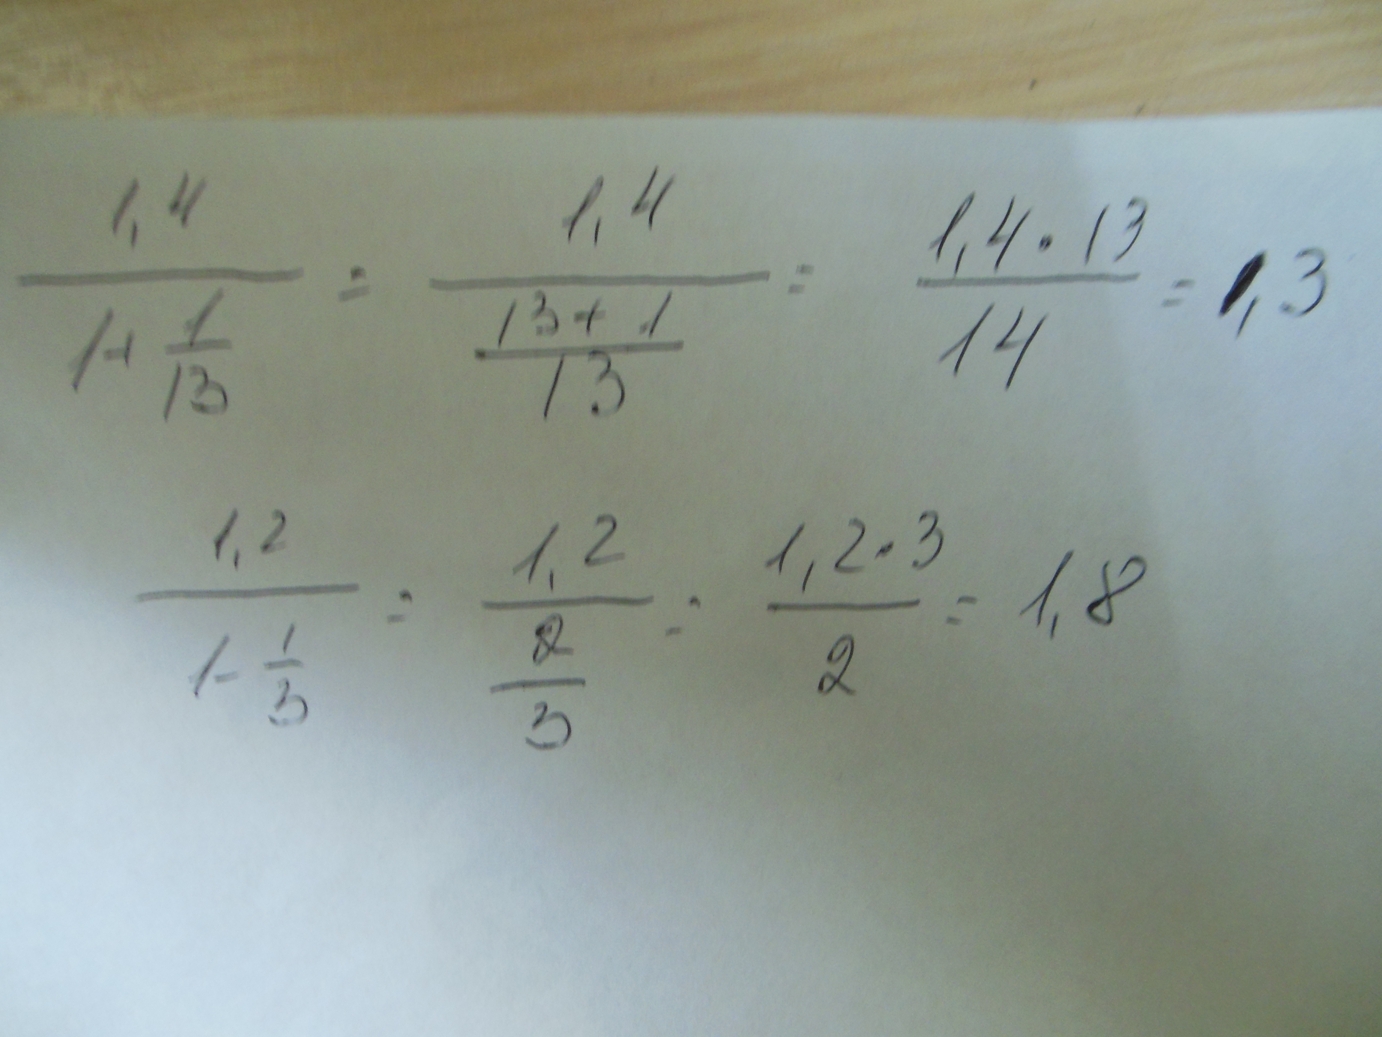 1,4 / (1 + 1/13) = 1,4 / ((13 + 1)/13) = (1,4 · 13)/14 = 1,3
1,2 / (1 - 1/3) = 1,2 / (2/3) = (1,2 · 3)/2 = 1,8